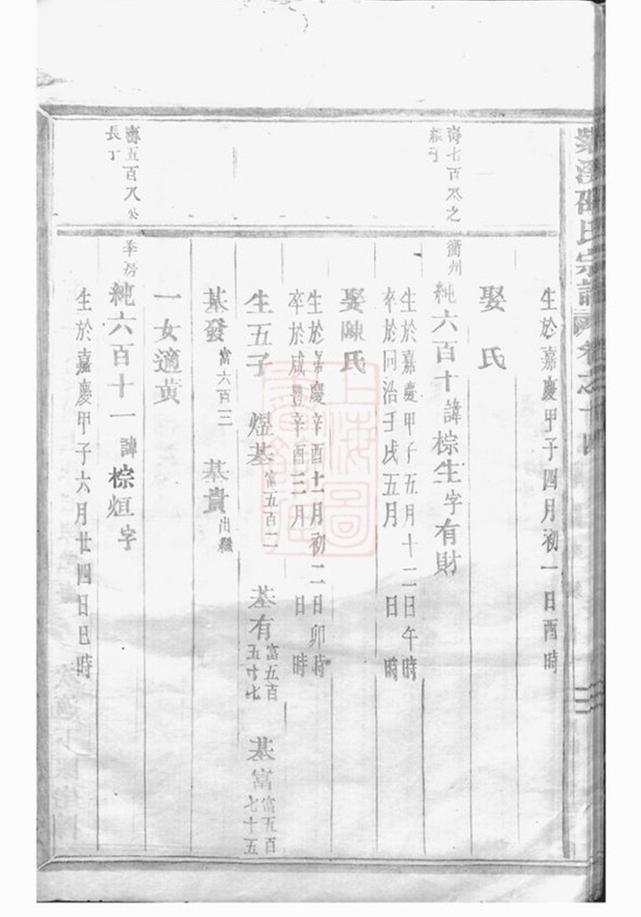 紫溪邵氏宗譜 卷之十四
生於嘉慶甲子四月初一日酉時
娶 氏
壽七百八之
繼子
衢州
純六百十 諱棕生字有財
生於嘉慶甲子五月十二日午時
卒於同治壬戌五月 日 時
娶陳氏
生於嘉慶辛酉十一月初二日卯時
卒於咸豐辛酉三月 日 時
生五子 煜基富五百二 基有富五百五十七 基富富五百七十五
基發富六百三 基貴出繼
一女適黃
壽五百八公
長丁
季房
純六百十一 諱棕烜字
生於嘉慶甲子六月廿四日巳時